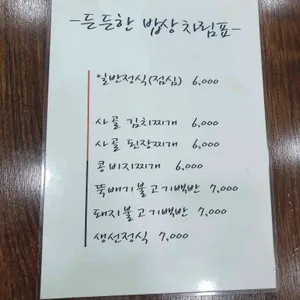 -든든한 밥상차림표-
일반정식(점심) 6,000
사골 김치찌개 6,000
사골 된장찌개 6,000
콩비지찌개 6,000
뚝배기불고기백반 7,000
돼지불고기백반 7,000
생선정식 7,000